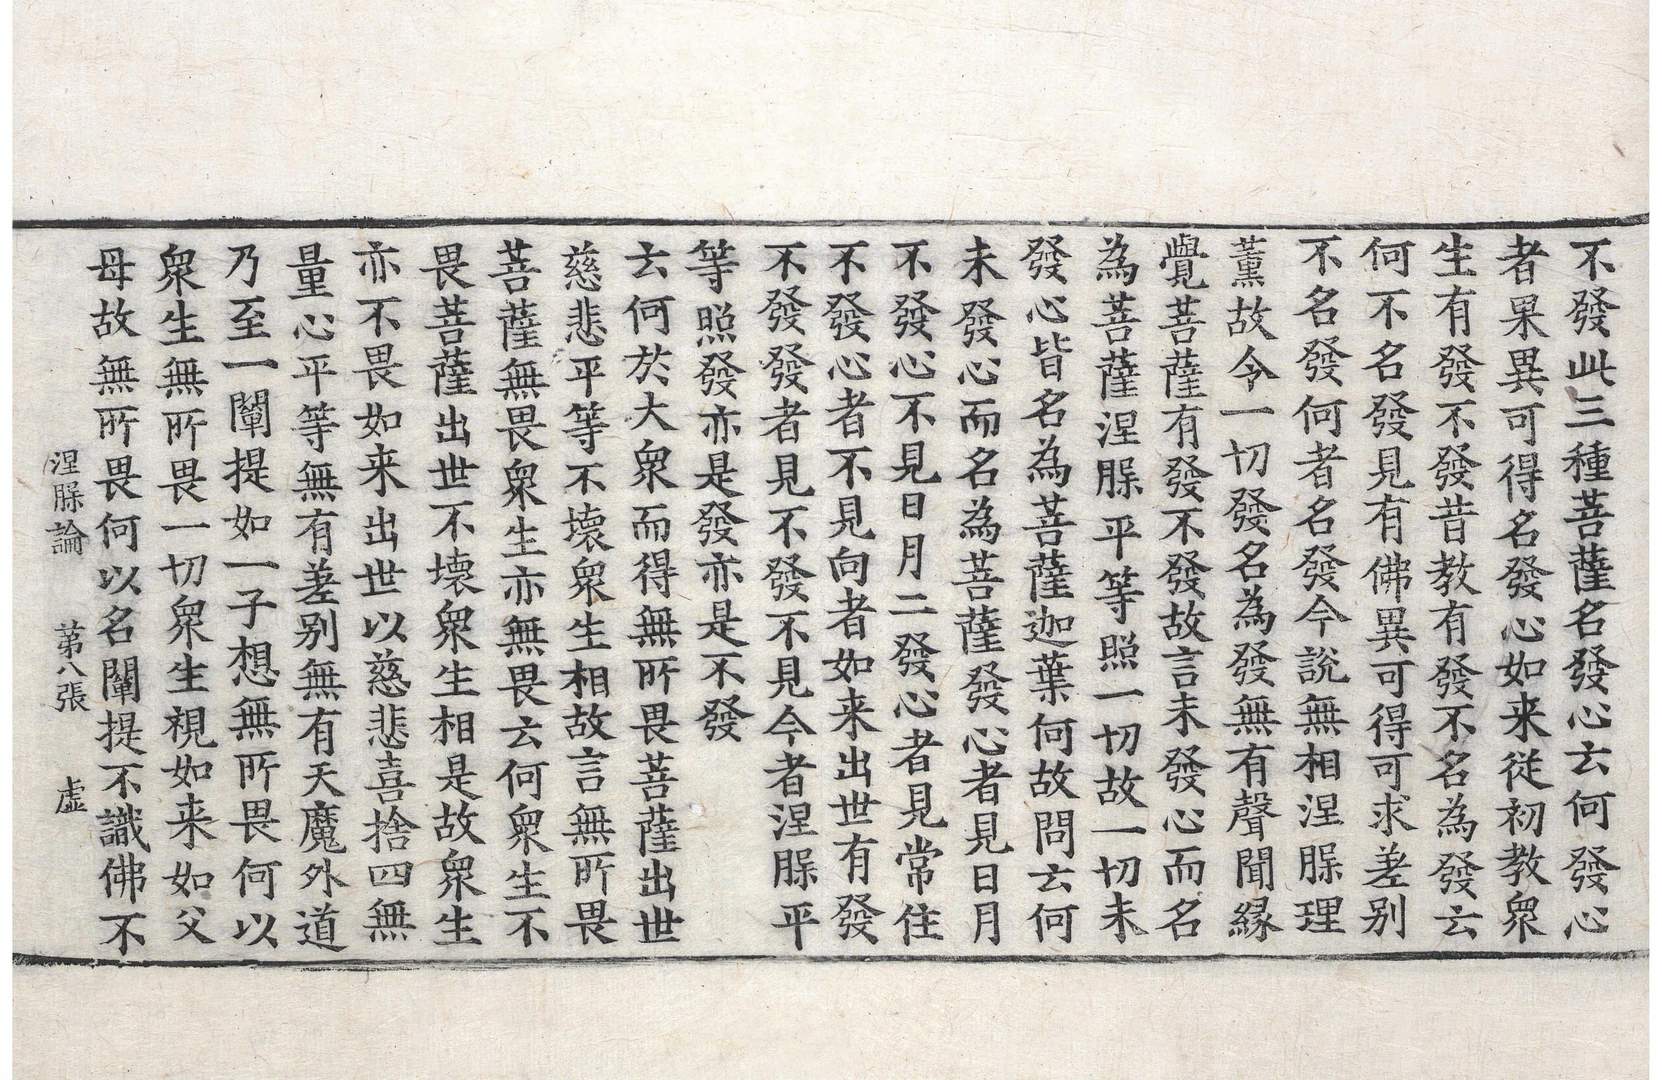 不發此三種菩薩名發心云何發心
者果異可得名發心如来従初教衆
生有發不發昔教有發不名為發云
何不名發見有佛異可得可求差别
不名發何者名發今說無相涅脲理
薫故令一切發名為發無有聲聞縁
覺菩薩有發不發故言未發心而名
為菩薩涅脲平等照一切故一切未
發心皆名為菩薩迦葉何故問云何
未發心而名為菩薩發心者見日月
不發心不見日月二發心者見常住
不發心者不見向者如来出世有發
不發發者見不發不見今者涅脲平
等照發亦是發亦是不發
云何於大衆而得無所畏菩薩出世
慈悲平等不壞衆生相故言無所畏
菩薩無畏衆生亦無畏云何衆生不
畏菩薩出世不壞衆生相是故衆生
亦不畏如来出世以慈悲喜捨四無
量心平等無有差别無有天魔外道
乃至一闡提如一子想無所畏何以
衆生無所畏一切衆生視如来如父
母故無所畏何以名闡提不識佛不
涅脲論 第八張 虛